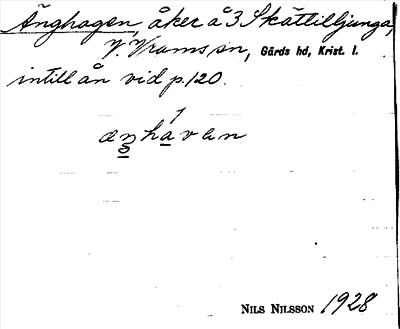 Änghagen, åker å 3 Skättilljunga,
V. Vrams sn, Gärds hd, Krist. l.
intill ån vid p. 120.
æŋhavan
NILS NILSSON 1928